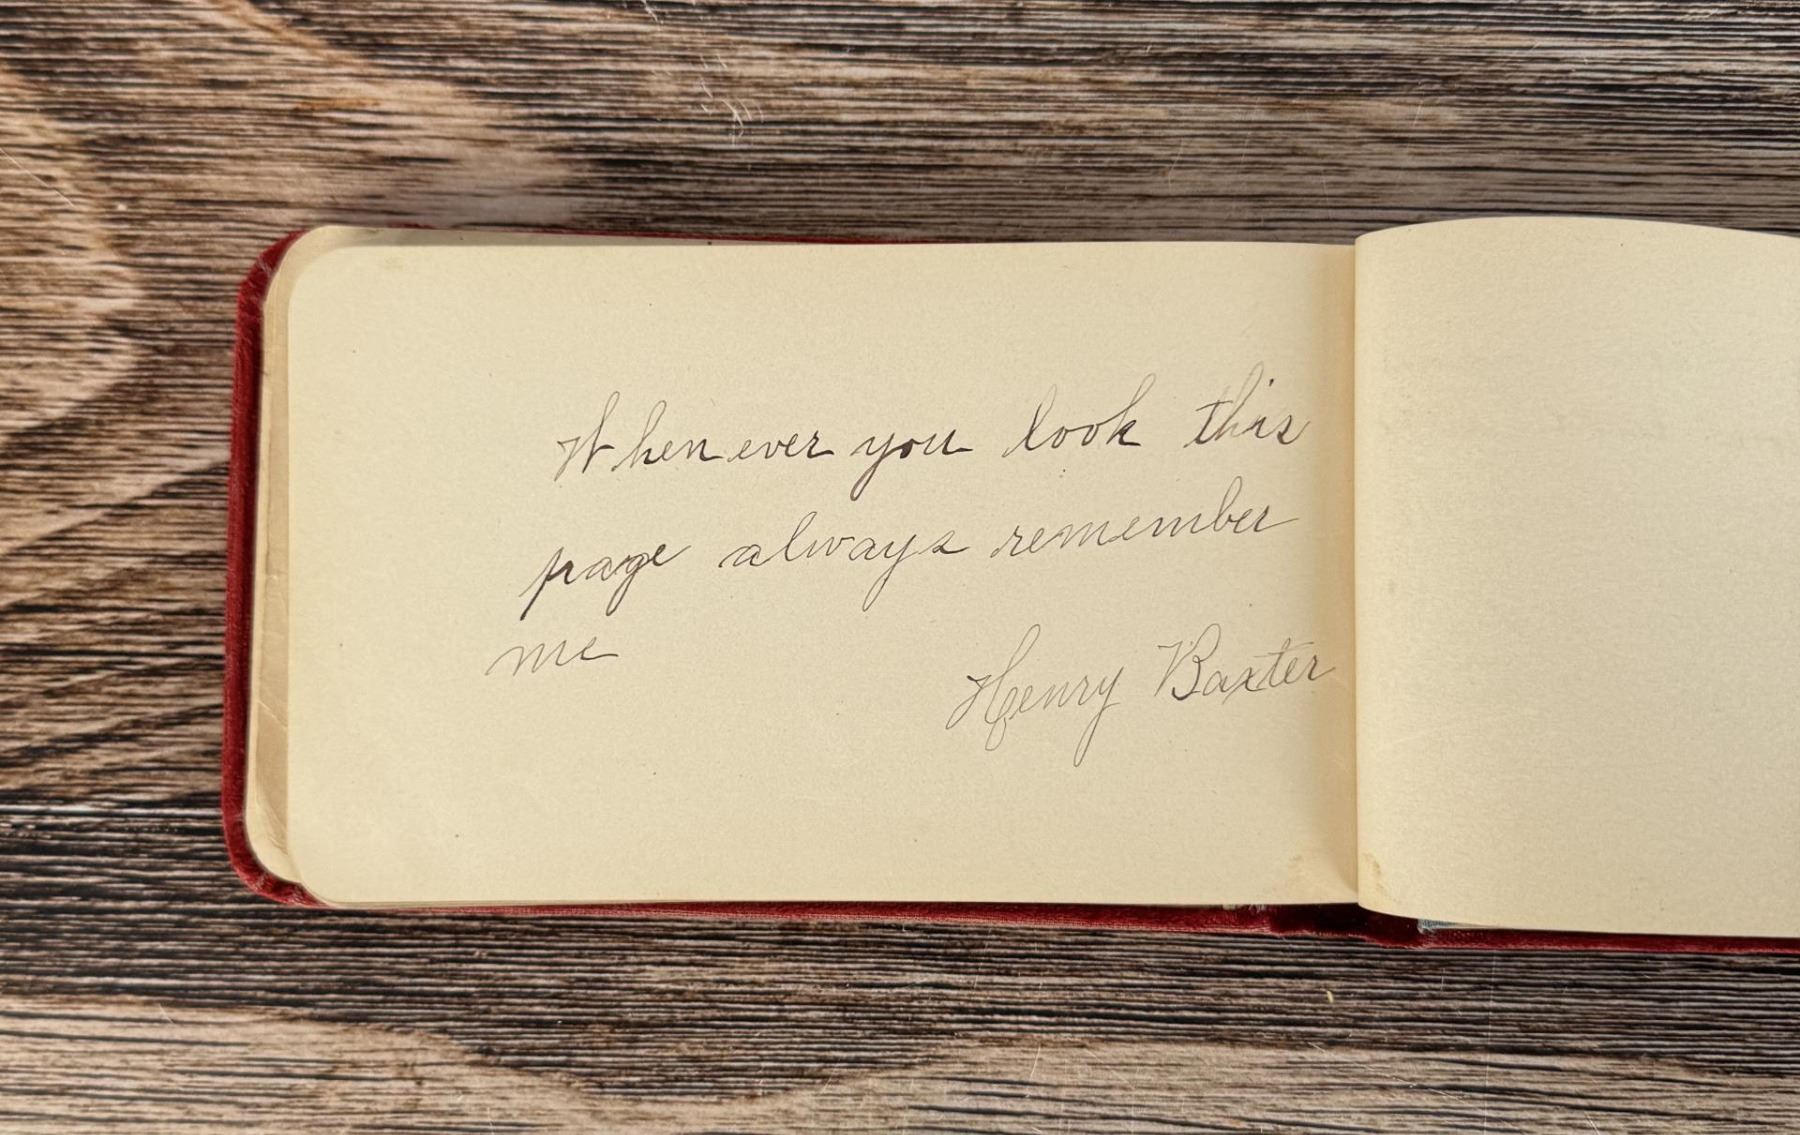 Whenever you look this
page always remember
me
Henry Baxter